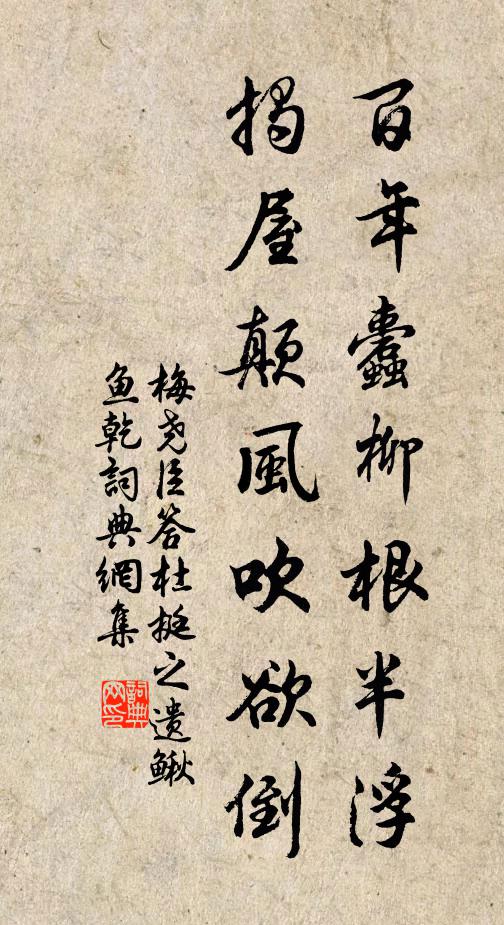 百年蠹柳根半浮
揭屋颠風吹欲倒
梅尧臣答杜挺之遗鳅
鱼乾詞典網集
詞典
网印